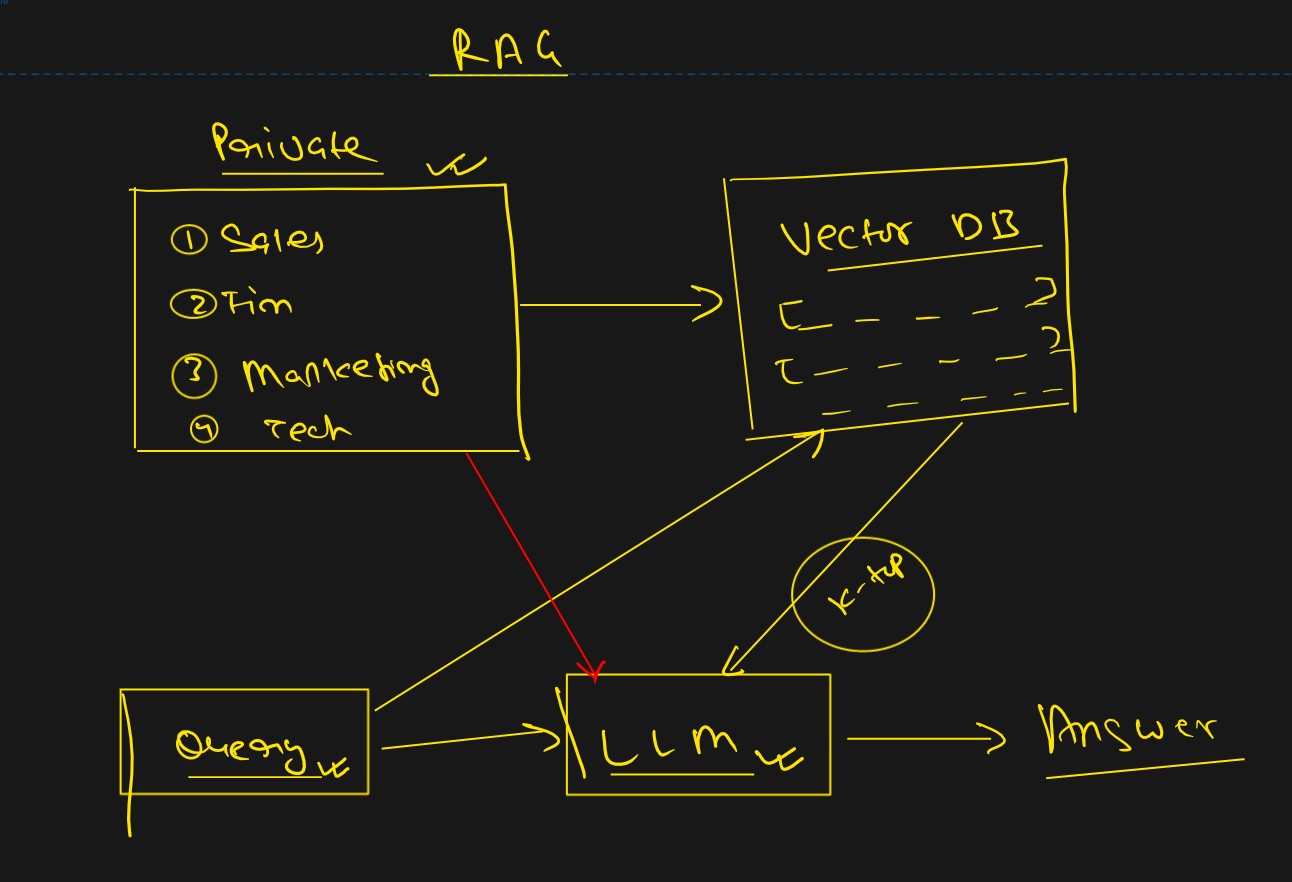 RAG
Private
① Sales
② Fin
③ Marketing
④ Tech
Vector DB
[ _ _ _ _ ]
[ _ _ _ _ ]
_ _ _ _ _
K-top
Query
LLM
Answer